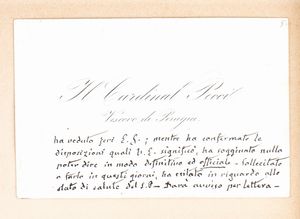 Il Cardinal Pecci
Vescovo di Perugia
ha veduto poi E. S.; mentre ha confermato le
disposizioni quali V. E. significò, ha soggiunto nulla
poter dire in modo definitivo ed officiale. Sollecitato
a farlo in questi giorni, ha esitato in riguardo allo
stato di salute del S. P. - Darà avviso per lettera -